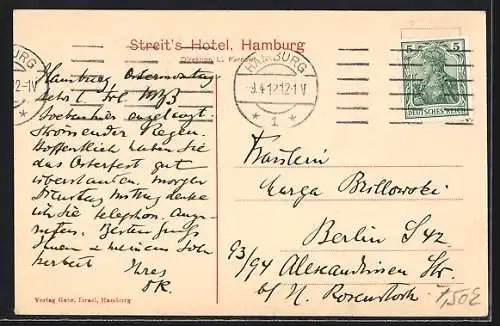 Streit's Hotel, Hamburg
HAMBURG
9.4.12.12-1V
* 1 *
5 5
DEUTSCHES REICH
Hamburg Ostermontag
Sehr l. Frl.
Soeben hier angelangt.
Strömender Regen.
Hoffentlich haben Sie
das Osterfest gut
überstanden. Morgen
Dienstag Mittag denke
ich Sie telephon. anzu-
rufen. Besten Gruß
Ihnen u meinem Sohn
Herbert Ihres
Fräulein
Marga Brillowski
Berlin S 42
93/94 Alexandrinen Str.
b/ N. Rosenstock
Verlag Gebr. Israel, Hamburg
7,50E